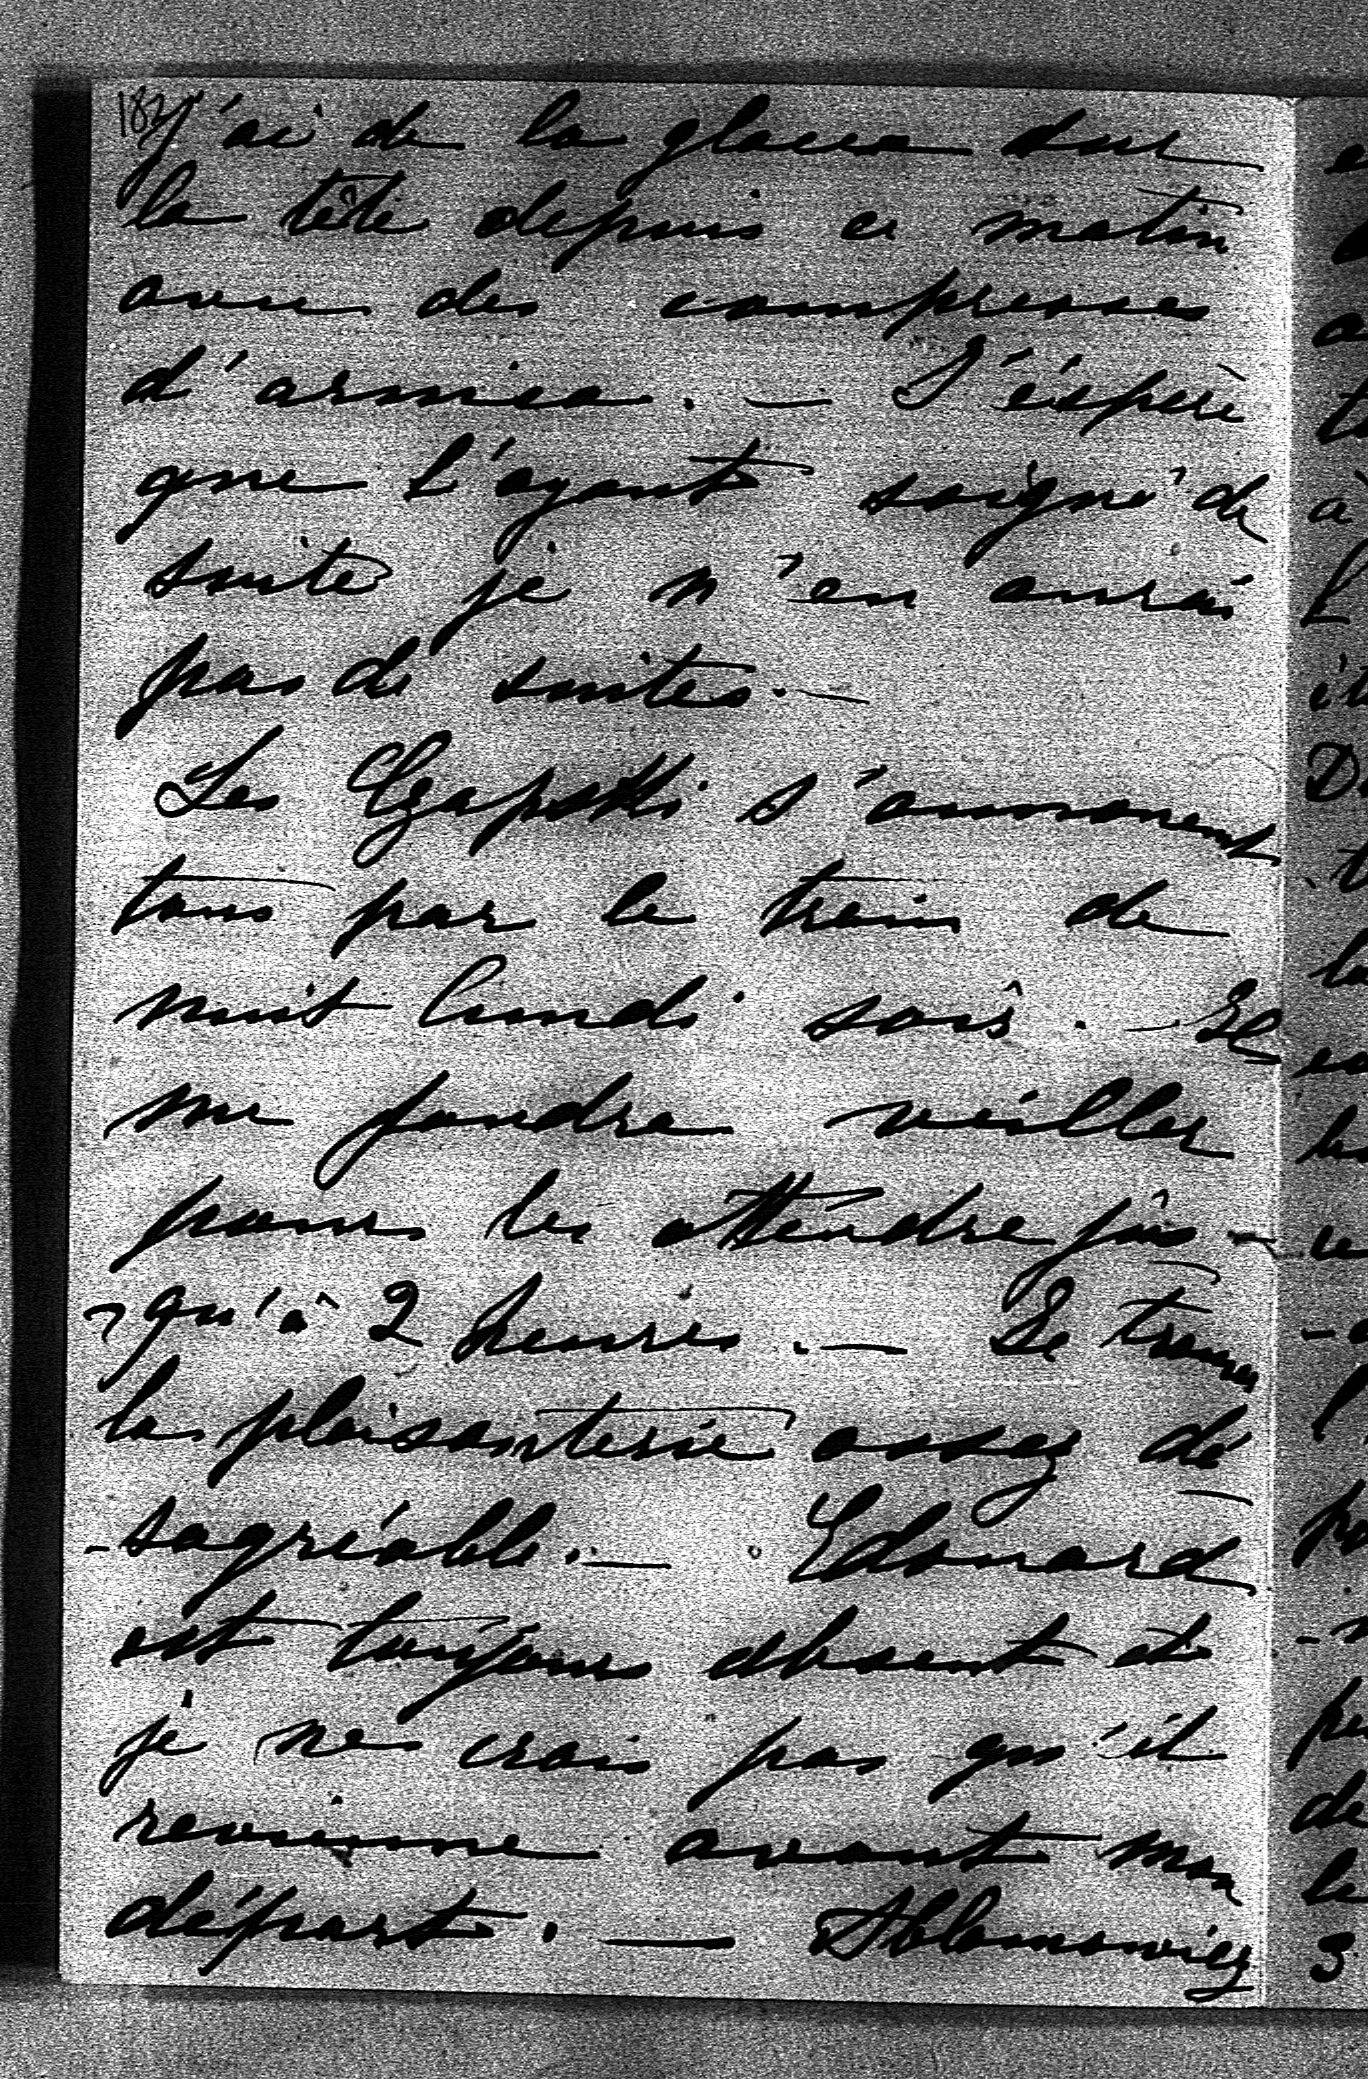 182
J'ai de la glace sur
la tête depuis ce matin
avec des compresses
d'arnica. — J'éspère
que l'ayant soigné de
suite je n'en aurai
pas de suites. —
Les Czapski s'annoncent
tous par le train de
nuit lundi soir. — Il
me faudra veiller
pour les attendre jus-
-qu'à 2 heures. — Je trouve
la plaisanterie assez dé
-sagréable. — Edouard
est toujours absent et
je ne crois pas qu'il
revienne avant mon
départ. — Ablamowicz